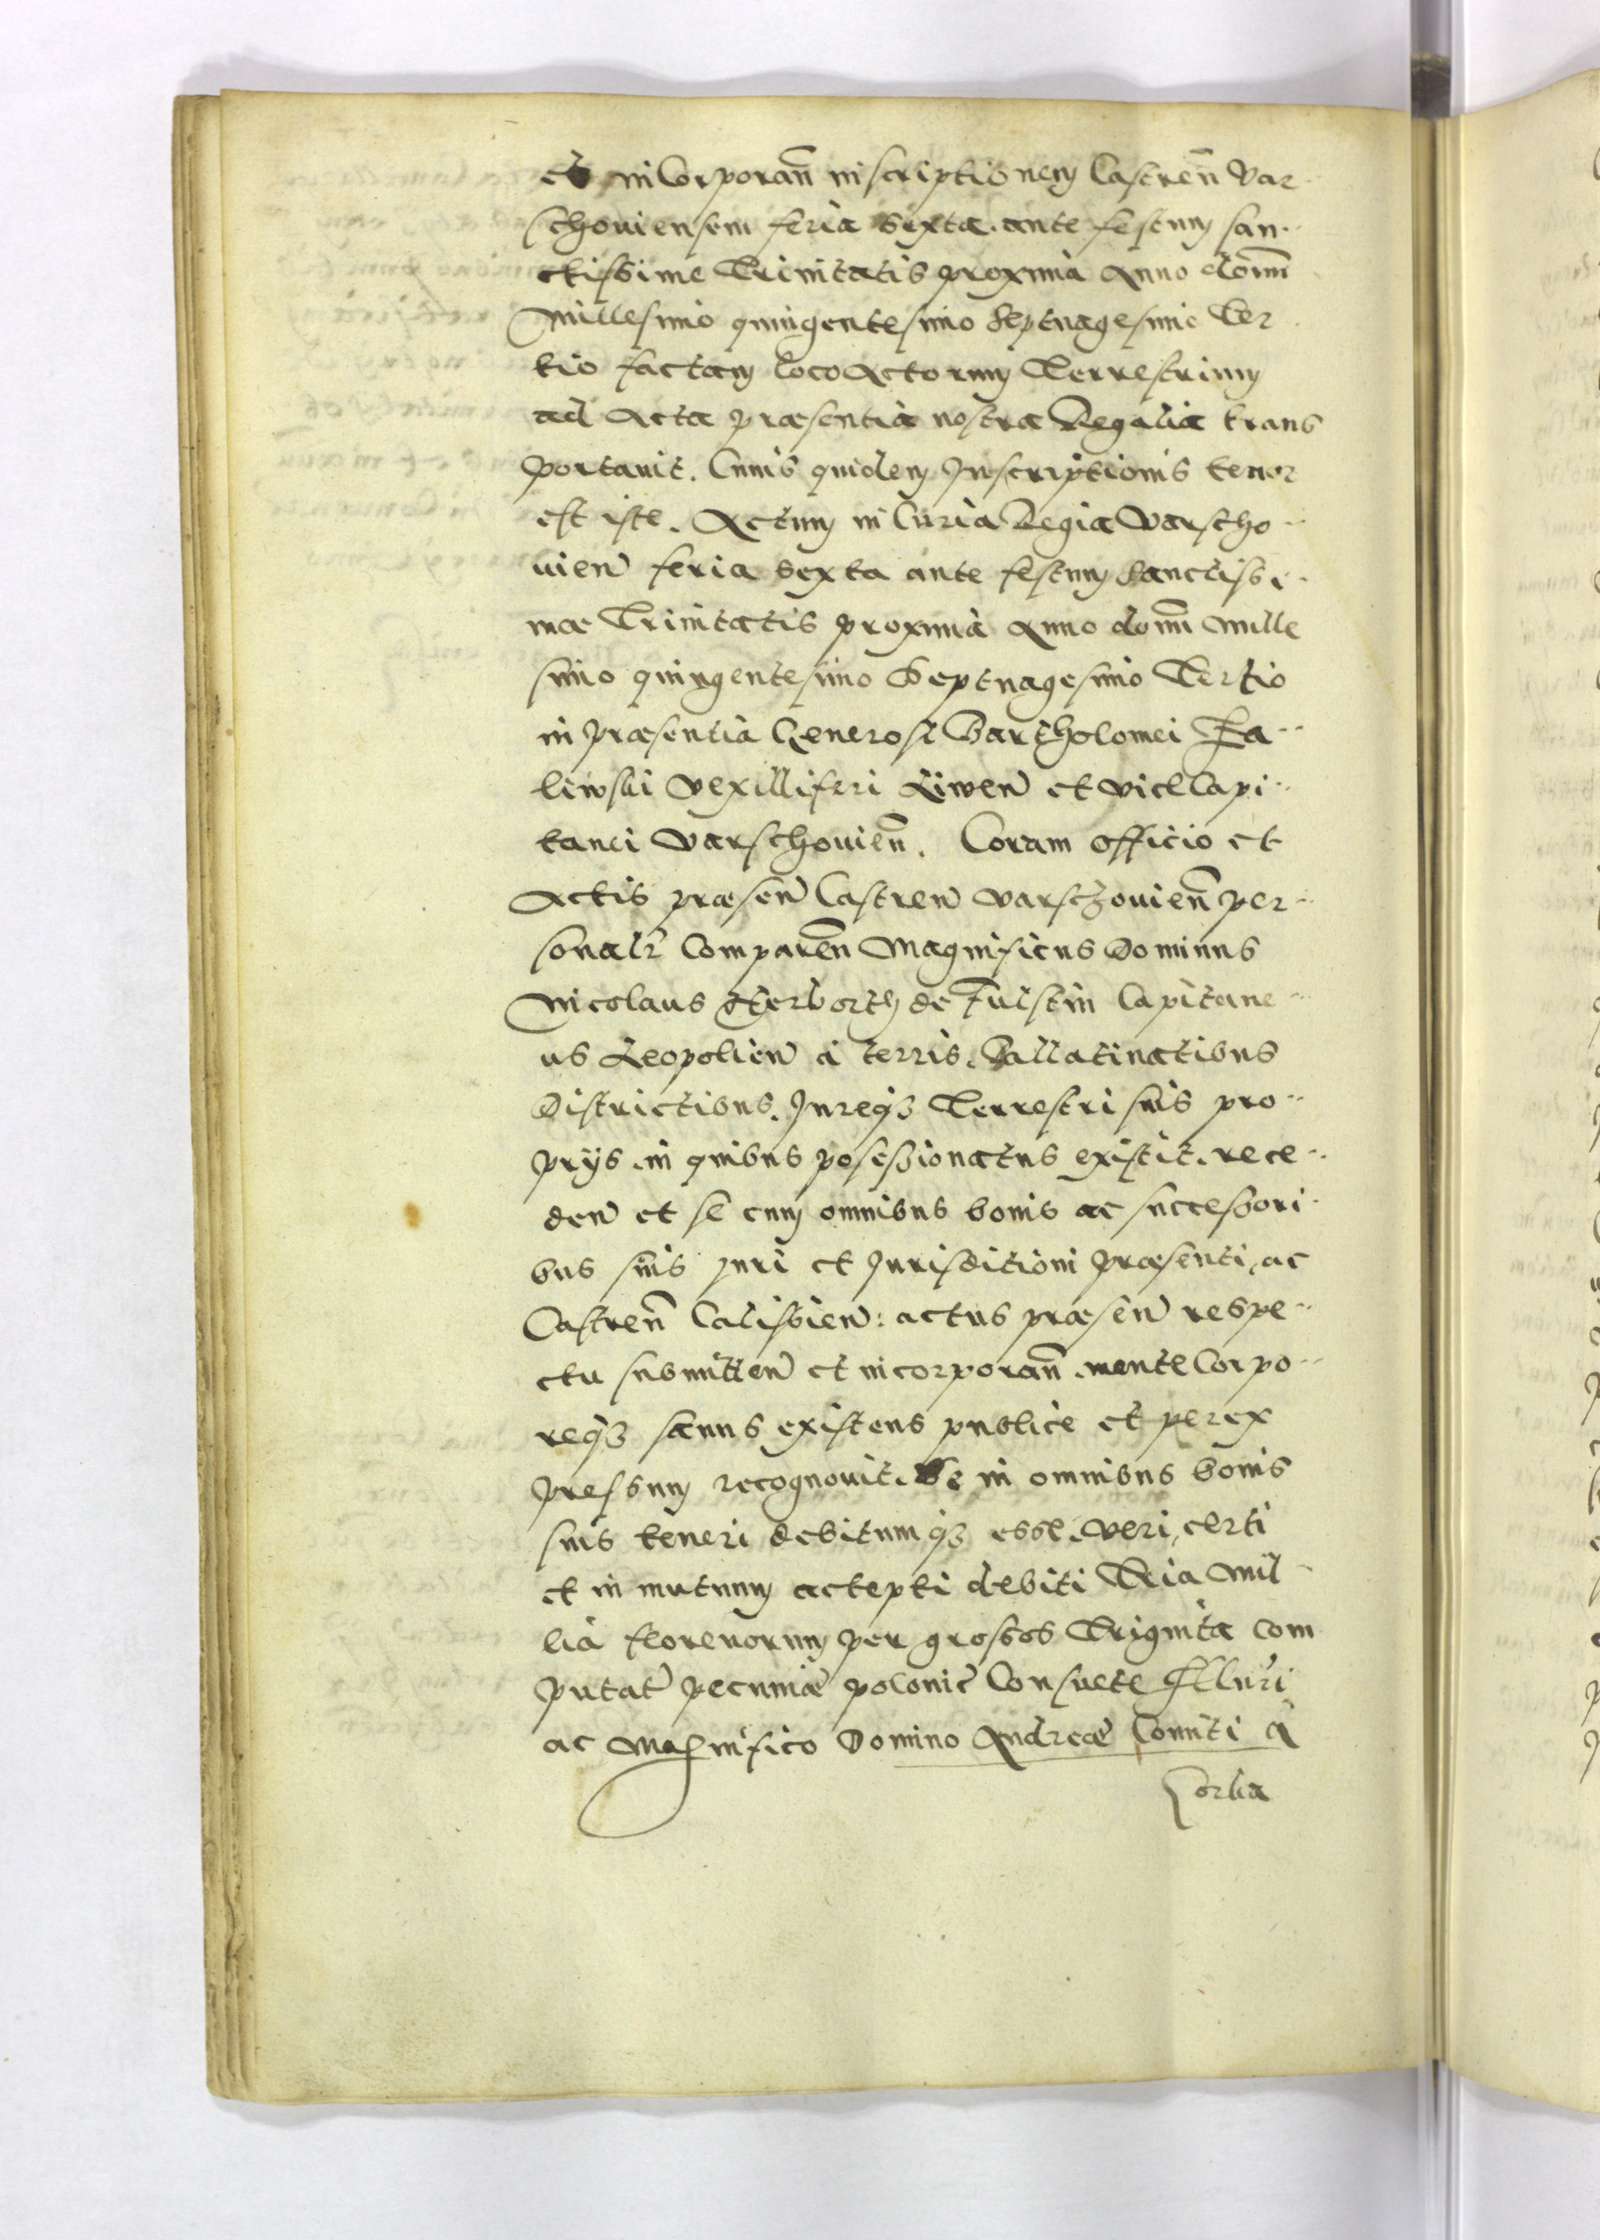 et inCorporan̄ inscriptionem Castren̄ Var-
schouiensem feria Sexta ante festum san-
ctissime Trinitatis proxima Anno dom̄
Millesimo quingentesimo Septuagesimo Ter
tio factam loco Actorum Terrestrium
ad Acta præsentia nostra Regalia trans
portauit. Cuius quidem Inscriptionis tenor
est iste. Actum in Curia Regia Varscho-
uien̄ feria Sexta ante festum Sanctissi-
mæ Trinitatis proxima Anno dom̄ Mille
simo quingentesimo Septuagesimo Tertio
in præsentia Generosi Bartholomei Za-
liwski Vexilliferi Liwen̄ et viceCapi-
tanei Varschouien̄. Coram officio et
Actis præsen̄ Castren̄ Varschouien̄ per-
sonalr̄ Comparen̄ Magnificus Dominus
Nicolaus Herborth de Fulstin Capitane-
us Leopolien̄ a terris, Pallatinatibus
Districtibus, Jureq₃ Terrestri suis pro-
prijs in quibus possessionatus existit, rece-
den̄ et se cum omnibus bonis ac successori-
bus suis juri et Jurisditioni præsenti, ac
Castren̄ Calissien̄: actus præsen̄ respe-
ctu submitten̄ et incorporan̄ mente Corpo-
req₃ sanus existens publice et per ex
pressum recognouit. Se in omnibus bonis
suis teneri debitumq₃ esse, veri, certi
et in mutuum accepti debiti Tria Mil-
lia florenorum per grossos Triginta com
putat̄ pecuniæ polonic̄ Consuete Illuri
ac Magnifico Domino Andreæ Comiti à
Gorka